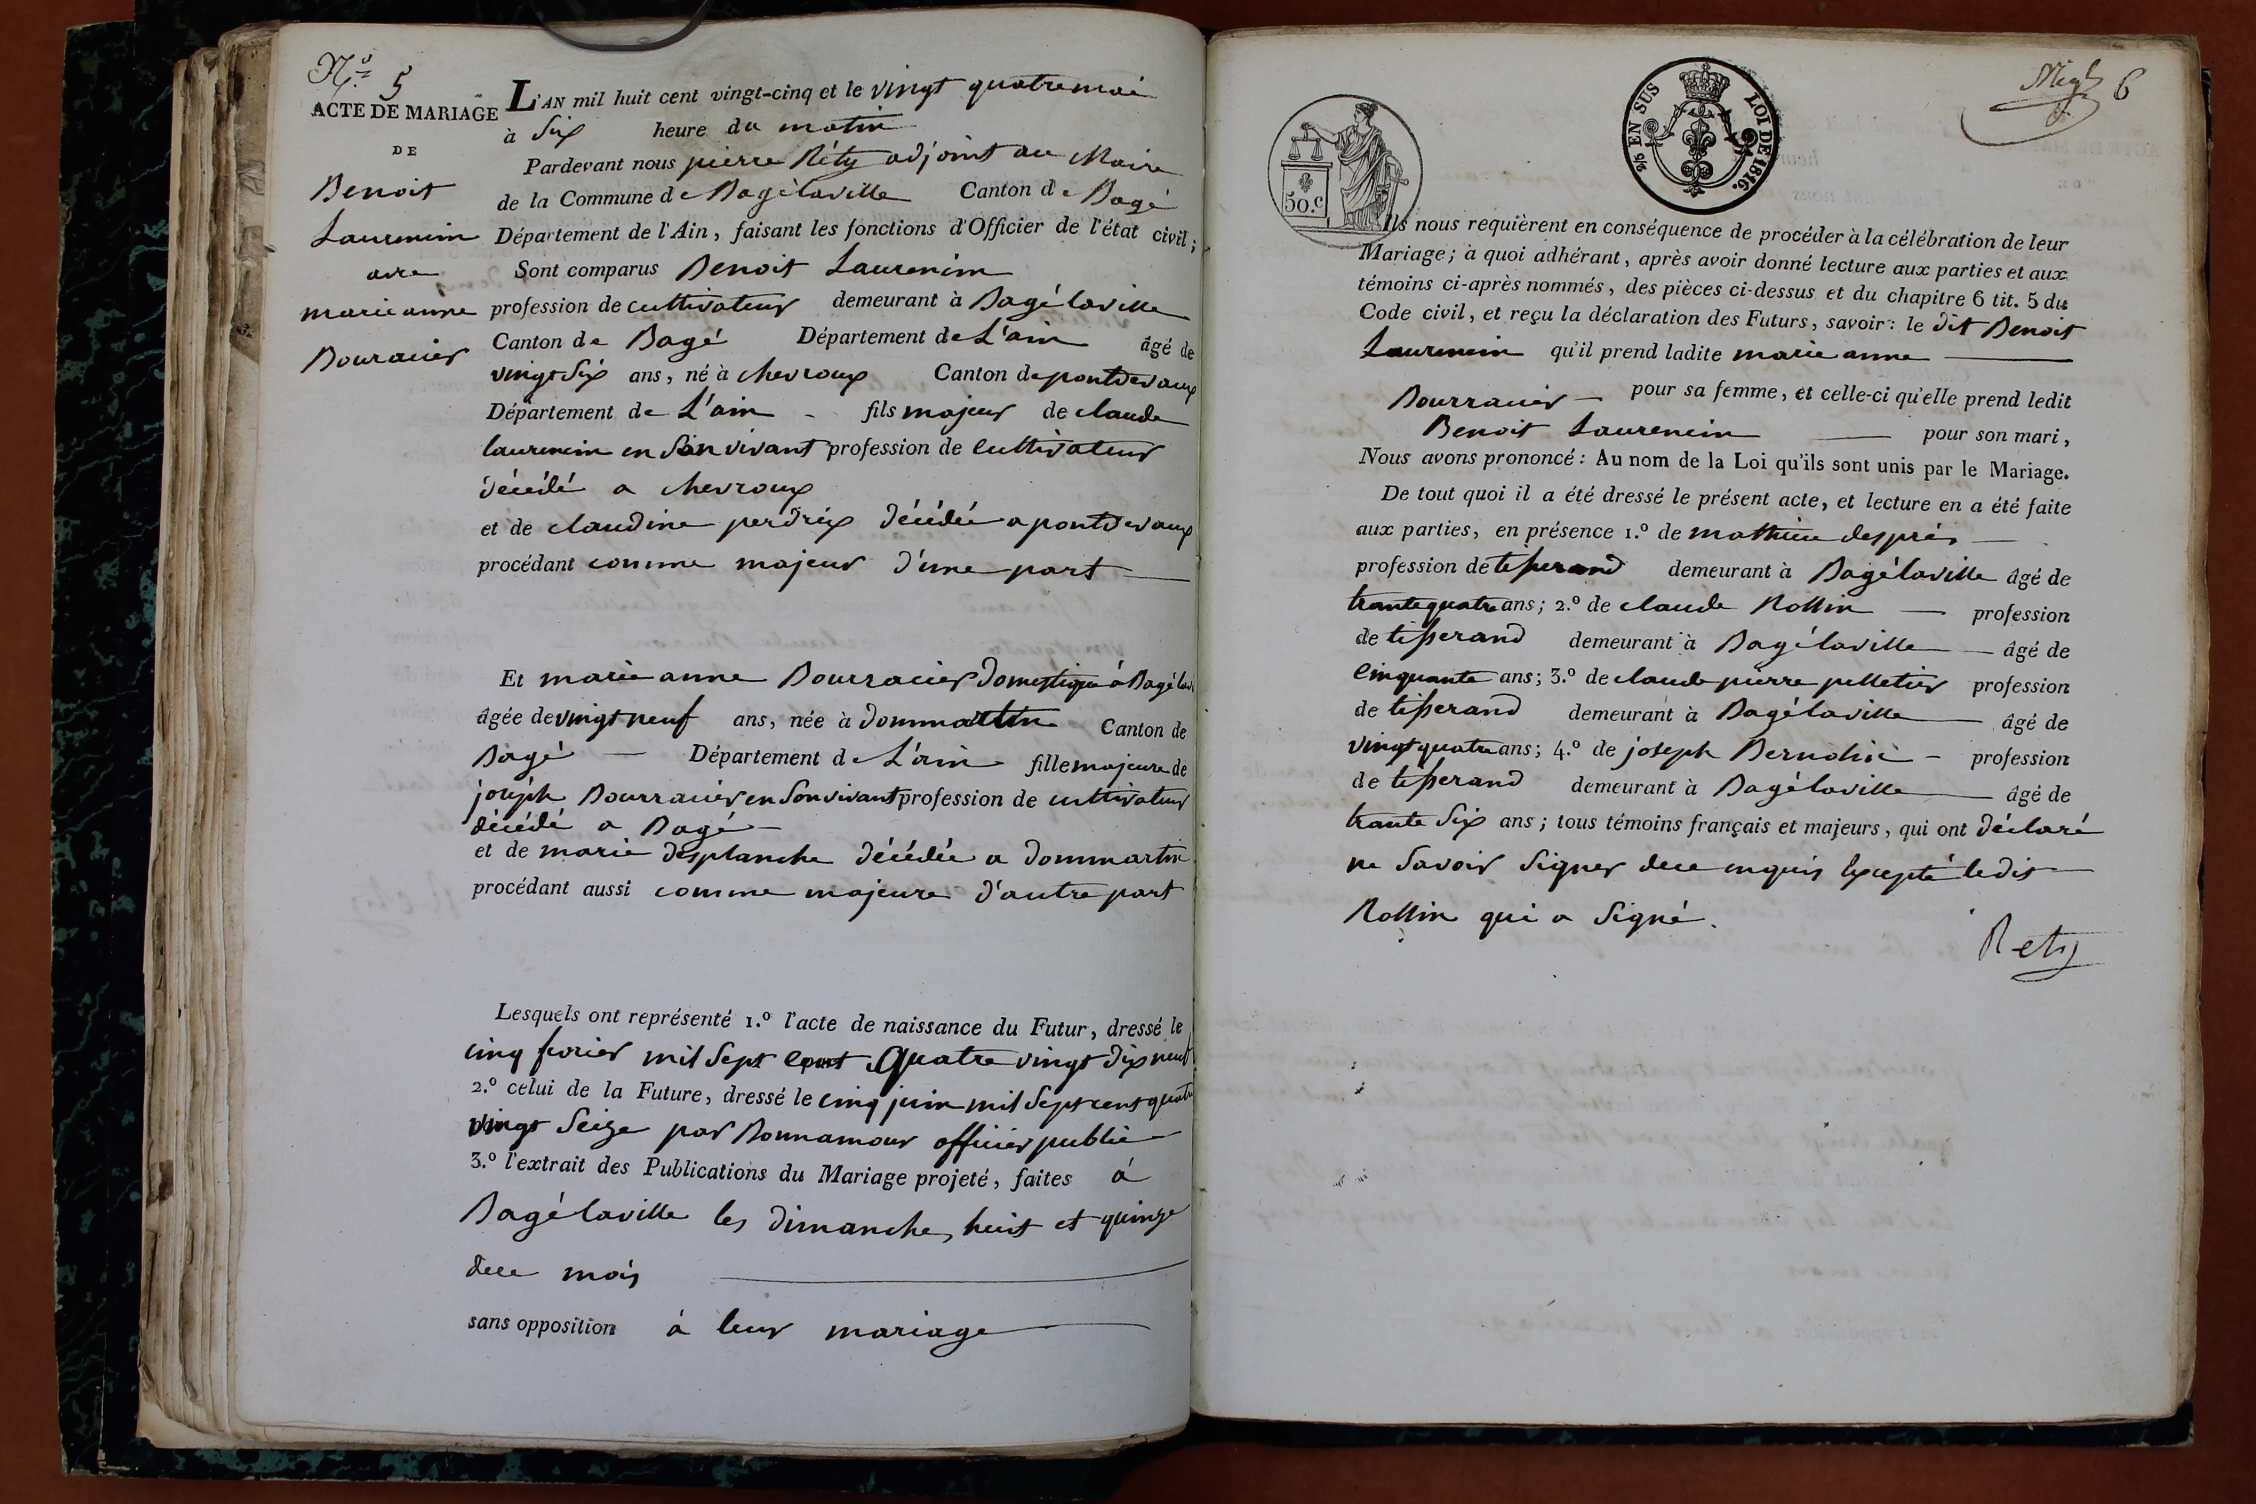 N.º 5
ACTE DE MARIAGE
DE
Benoit
Laurencin
avec
marie anne
Bourracier
L'AN mil huit cent vingt-cinq et le vingt quatre mai
à Six heure du matin
Pardevant nous pierre Réty adjoint au Maire
de la Commune de Bagélaville Canton de Bagé
Département de l'Ain, faisant les fonctions d'Officier de l'état civil;
Sont comparus Benoit Laurencin
profession de cultivateur demeurant à Bagélaville
Canton de Bagé Département de L'ain âgé de
vingt Six ans, né à chevroux Canton de pontdevaux
Département de L'ain - fils majeur de claude
laurencin en Son vivant profession de Cultivateur
décédé a chevroux
et de claudine perdrix décédée a pontdevaux
procédant comme majeur d'une part
Et marie anne Bourracier domestique á Bagélavi
âgée de vingt neuf ans, née à dommartin Canton de
Bagé Département de L'ain fille majeure de
joseph Bourracier en Son vivant profession de cultivateur
décédé a Bagé
et de marie desplanche décédée a dommartin
procédant aussi comme majeure d'autre part
Lesquels ont représenté 1.º l'acte de naissance du Futur, dressé le
cinq fevrier mil Sept Cent Quatre vingt dix neuf
2.º celui de la Future, dressé le cinq juin mil Sept cent quatre
vingt Seize par Bonnamour officier public
3.º l'extrait des Publications du Mariage projeté, faites á
Bagélaville les dimanche, huit et quinze
dece mois
sans opposition á leur mariage
50.C
2/5 EN SUS LOI DE 1816.
6
Ils nous requièrent en conséquence de procéder à la célébration de leur
Mariage; à quoi adhérant, après avoir donné lecture aux parties et aux
témoins ci-après nommés, des pièces ci-dessus et du chapitre 6 tit. 5 du
Code civil, et reçu la déclaration des Futurs, savoir: le dit Benoit
Laurencin qu'il prend ladite marie anne
Bourracier pour sa femme, et celle-ci qu'elle prend ledit
Benoit Laurencin pour son mari,
Nous avons prononcé: Au nom de la Loi qu'ils sont unis par le Mariage.
De tout quoi il a été dressé le présent acte, et lecture en a été faite
aux parties, en présence 1.º de mathieu després
profession de tisserand demeurant à Bagélaville âgé de
trante quatre ans; 2.º de claude Rollin profession
de tisserand demeurant à Bagélaville âgé de
Cinquante ans; 3.º de claude pierre pelletier profession
de tisserand demeurant à Bagélaville âgé de
vingt quatre ans; 4.º de joseph profession
de tisserand demeurant à Bagélaville âgé de
trante Six ans; tous témoins français et majeurs, qui ont déclaré
ne Savoir Signer dece enquis Excepté ledit
Rollin qui a Signé.
Rety